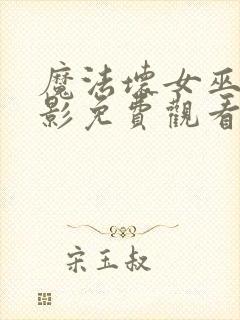 魔法壞女巫
影免費觀看
宋玉叔